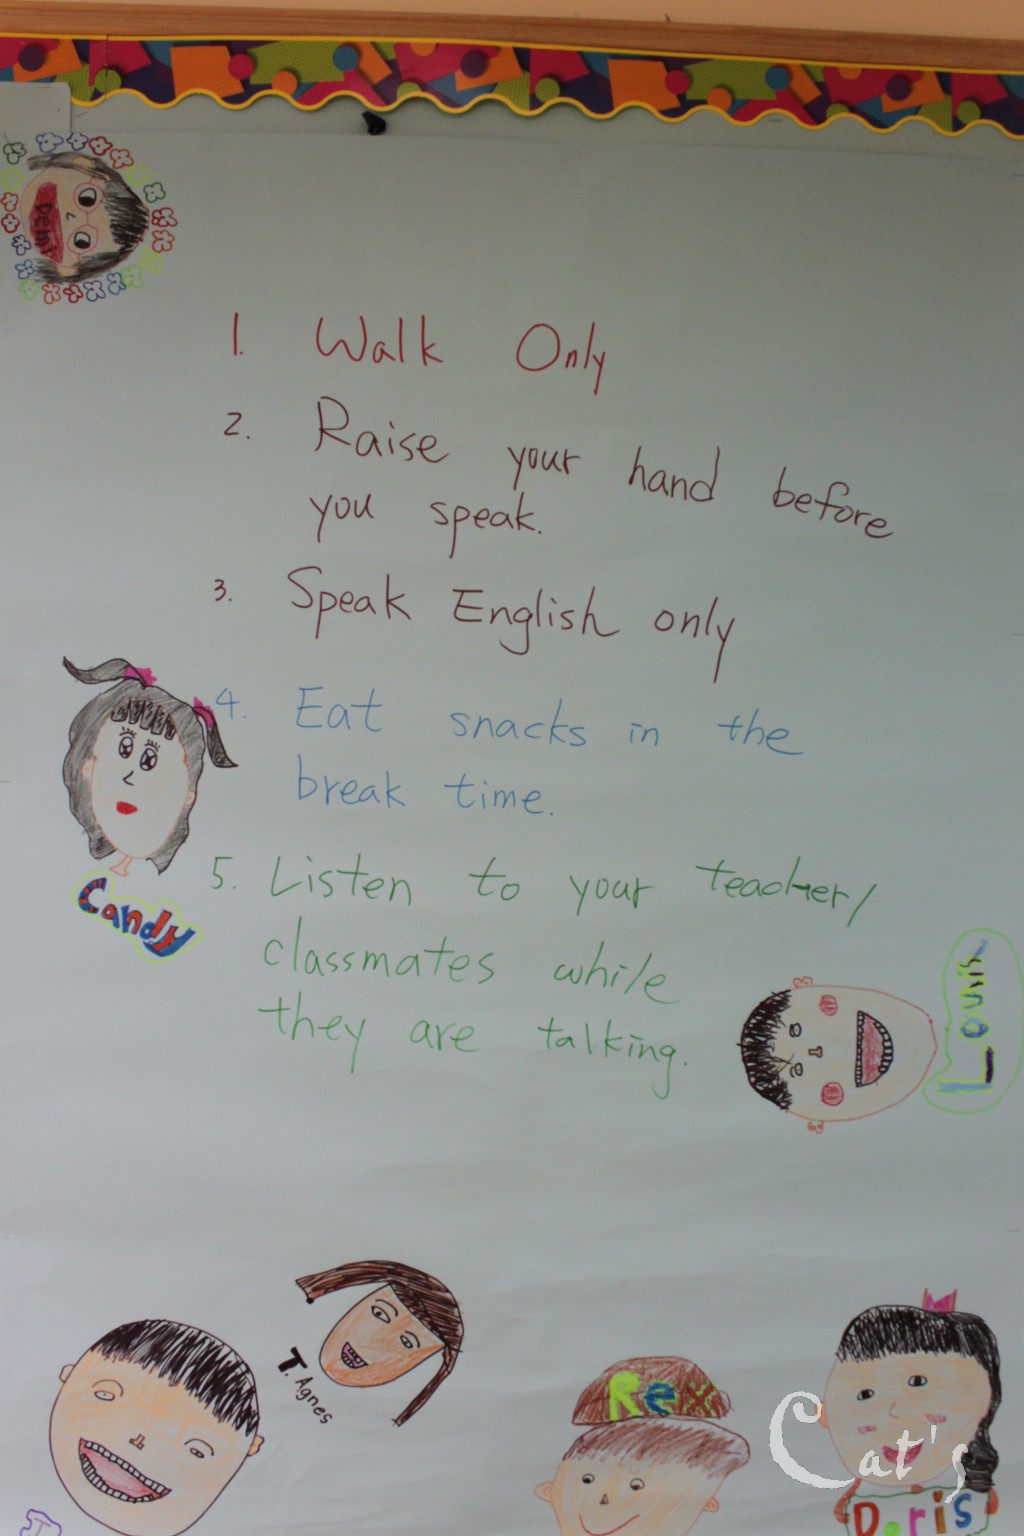 1. Walk Only
2. Raise your hand before
you speak.
3. Speak English only
4. Eat snacks in the
break time.
5. Listen to your teacher/
classmates while
they are talking.
Candy
Louis
T. Agnes
Rex
Doris
Cat's